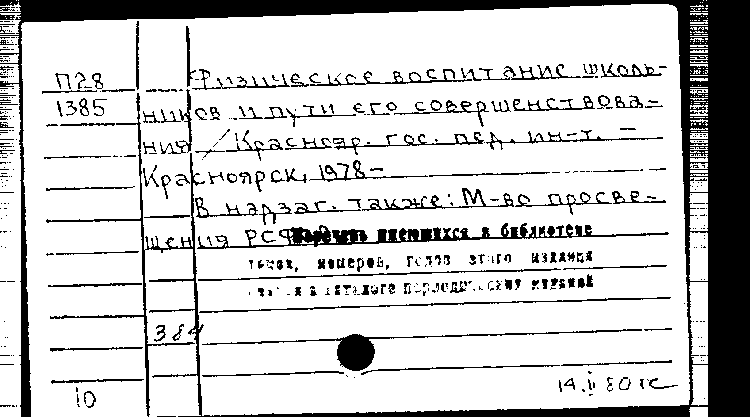 П28
1385
Физическое воспитание школь-
ников и пути его совершенствова-
ния / Краснояр. гос. пед. ин-т. –
Красноярск, 1978 –
В надзаг. также: М-во просве-
щения РСФСР
Перечень имеющихся в библиотеке
томов, номеров, годов этого издания
в каталоге периодических изданий
384
10
14.II 80